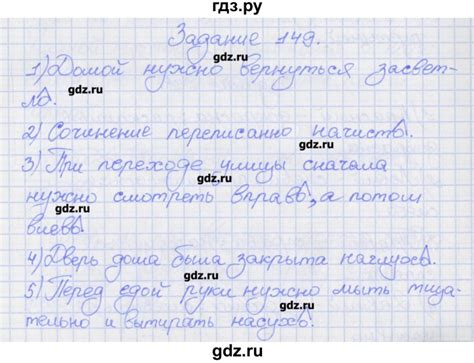 гдз.ру
Задание 149.
gdz.ru
1) Домой нужно вернуться засвет-
gdz.ru
ла.
gdz.ru
2) Сочинение переписанно начисто.
gdz.ru
3) При переходе улицы сначала
gdz.ru
нужно смотреть вправо, а потом
gdz.ru
влево.
gdz.ru
4) Дверь дома была закрыта наглухо.
gdz.ru
5) Перед едой руки нужно мыть тща-
gdz.ru
тельно и вытирать насухо.
gdz.ru